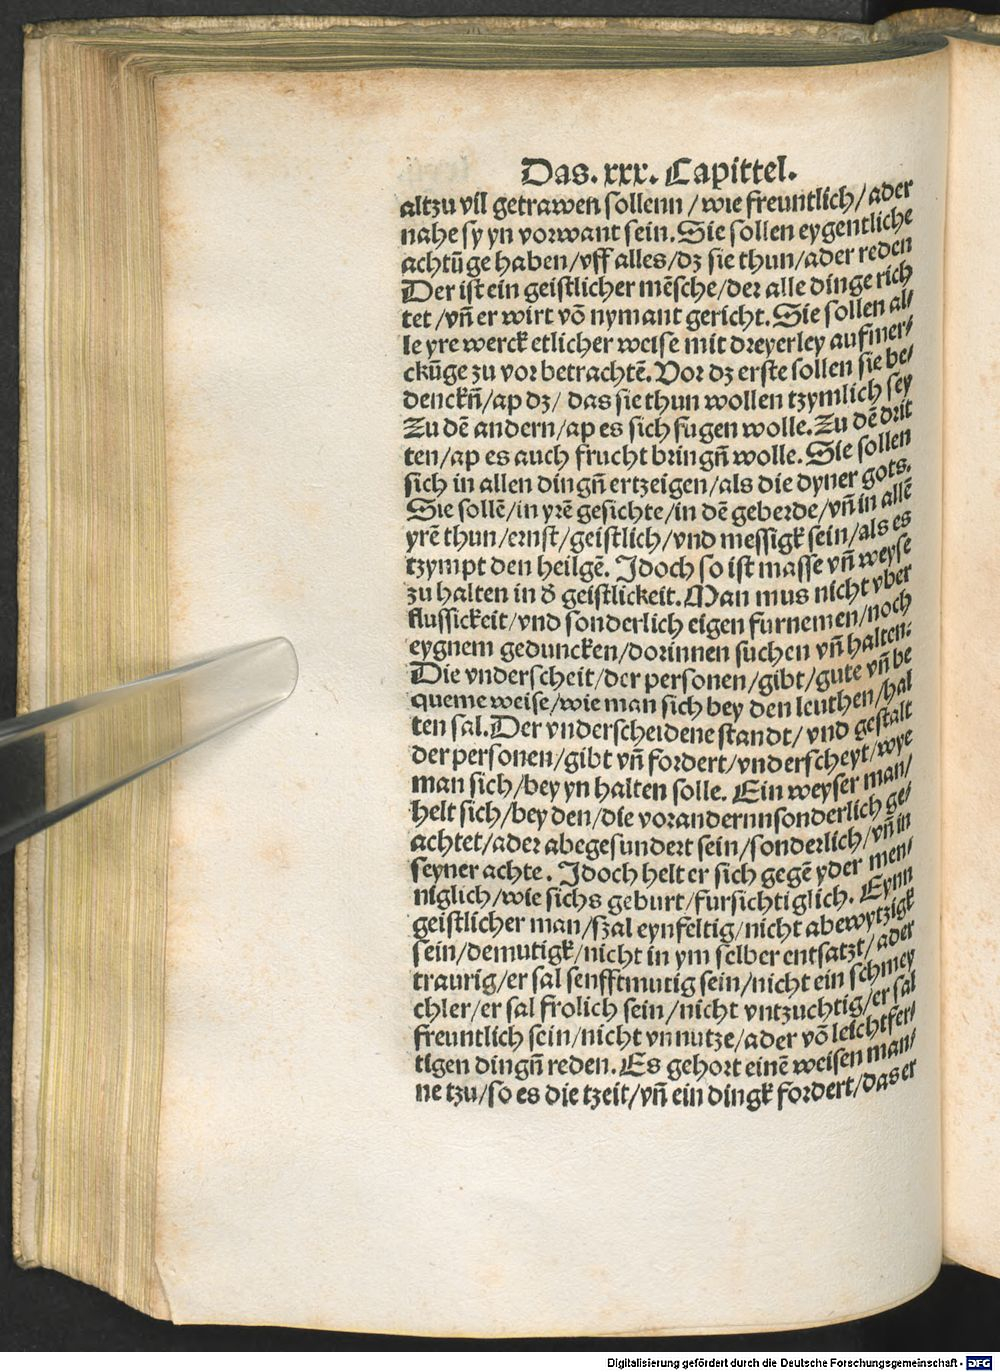 Das. xxx. Capittel.
altzu vil getrawen sollenn / wie freuntlich / ader
nahe sy yn vorwant sein. Sie sollen eygentliche
achtūge haben / vff alles / dz sie thun / ader reden
Der ist ein geistlicher mēsche / der alle dinge rich
tet / vn̄ er wirt vō nymant gericht. Sie sollen al/
le yre werck etlicher weise mit dreyerley aufmer/
ckūge zu vor betrachtē. Vor dz erste sollen sie be/
denckn̄ / ap dz / das sie thun wollen tzymlich sey
Zu dē andern / ap es sich fugen wolle. Zu dē drit
ten / ap es auch frucht bringn̄ wolle. Sie sollen
sich in allen dingn̄ ertzeigen / als die dyner gots.
Sie sollē / in yrē gesichte / in dē geberde / vn̄ in allē
yrē thun / ernst / geistlich / vnd messigk sein / als es
tzympt den heilgē. Idoch so ist masse vn̄ weyse
zu halten in d̕ geistlickeit. Man mus nicht vber
flussickeit / vnd sonderlich eigen furnemen / noch
eygnem geduncken / dorinnen suchen vn̄ halten:
Die vnderscheit / der personen / gibt / gute vn̄ be
queme weise / wie man sich bey den leuthen / hal
ten sal. Der vnderscheidene standt / vnd gestalt
der personen / gibt vn̄ fordert / vnderscheyt / wye
man sich / bey yn halten solle. Ein weyser man /
helt sich / bey den / die vorandernnsonderlich ge/
achtet / ader abegesundert sein / sonderlich / vn̄ in
seyner achte. Idoch helt er sich gegē yder men/
niglich / wie sichs geburt / fursichtiglich. Eynn
geistlicher man / szal eynfeltig / nicht abewytzigk
sein / demutigk / nicht in ym selber entsatzt / ader
traurig / er sal senfftmutig sein / nicht ein schmey
chler / er sal frolich sein / nicht vntzuchtig / er sal
freuntlich sein / nicht vnnutze / ader vō leichtfer/
tigen dingn̄ reden. Es gehort einē weisen man/
ne tzu / so es die tzeit / vn̄ ein dingk fordert / das er
Digitalisierung gefördert durch die Deutsche Forschungsgemeinschaft - DFG